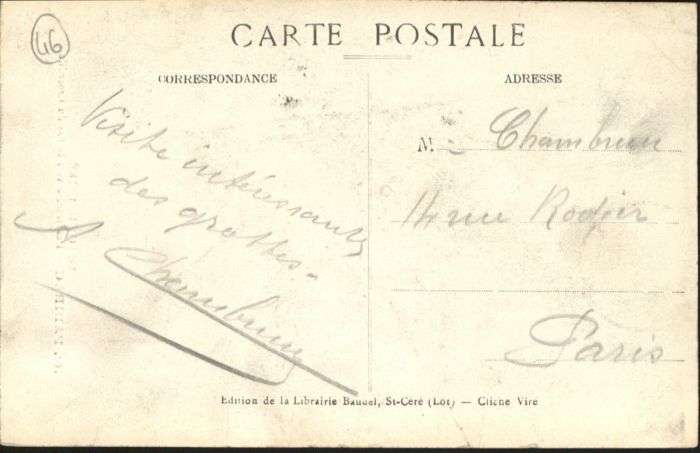 46
CARTE POSTALE
CORRESPONDANCE
ADRESSE
Visite intéressante
des grottes.
Chambrun
M. Chambrun
14 rue Rodier
Paris
Edition de la Librairie Baudel, St-Céré (Lot) — Cliche Vire